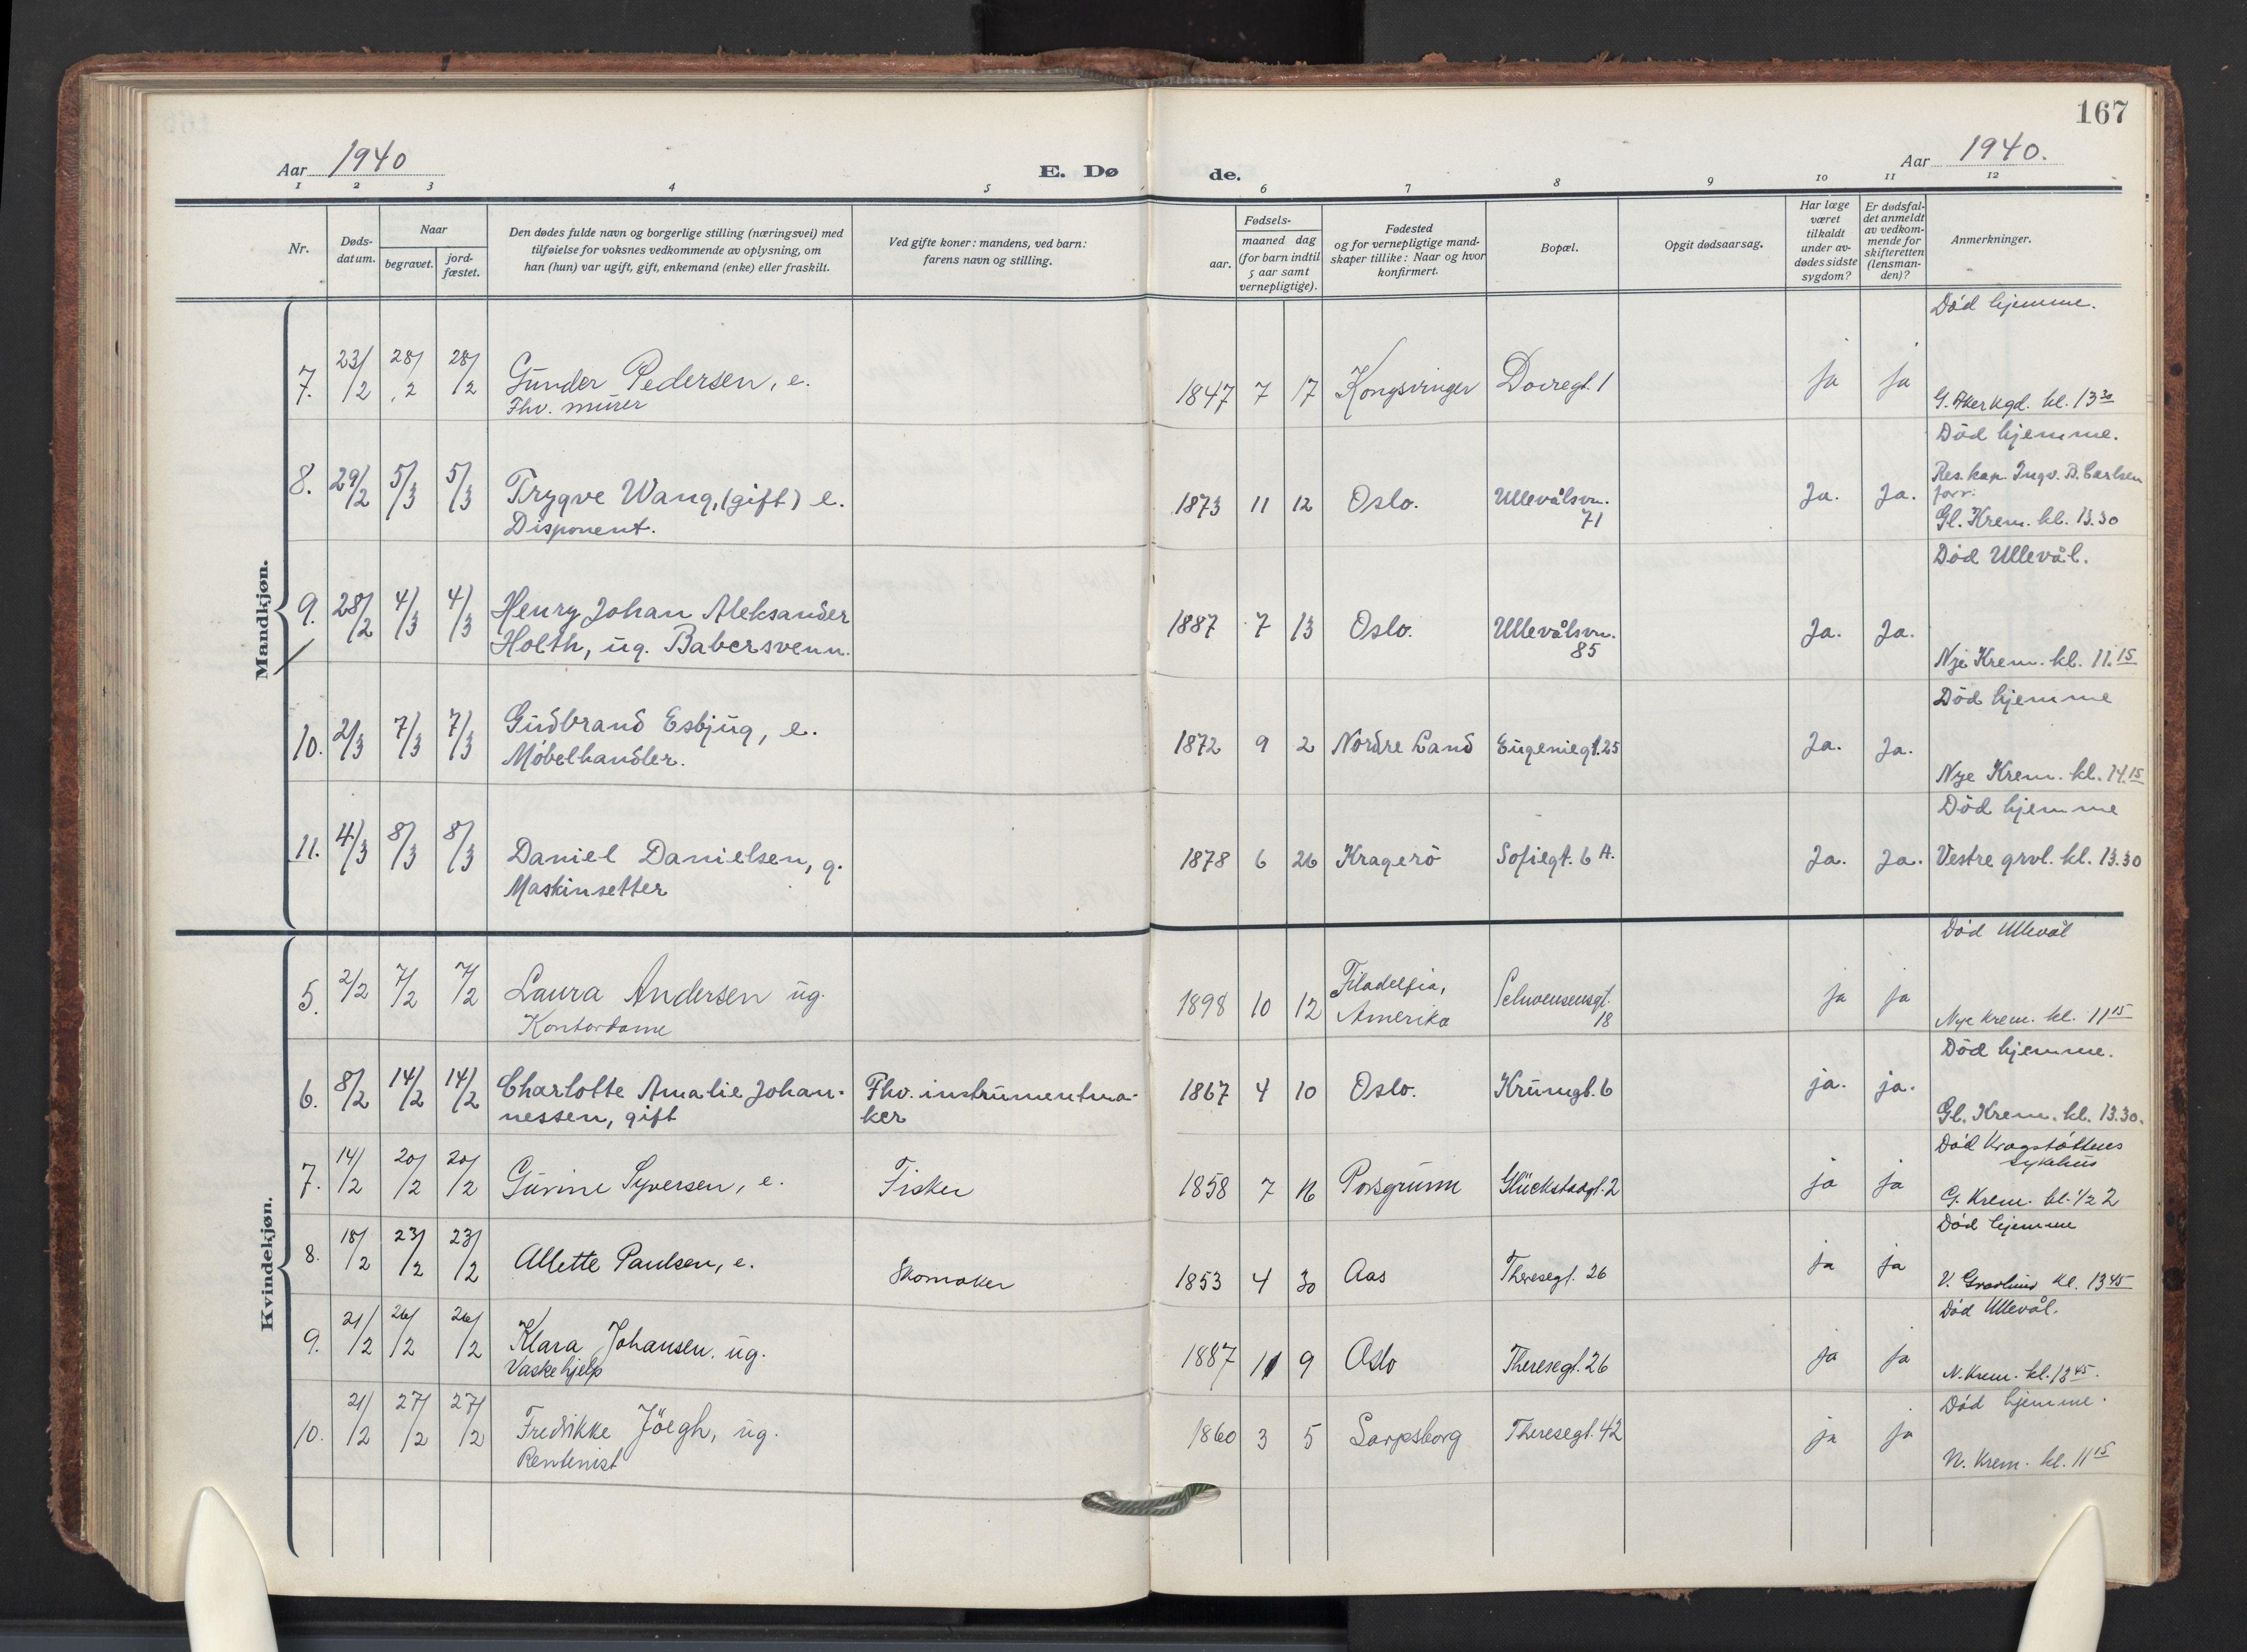 167
Aar 1940
E. Dø de.
Aar 1940.
1 2 3 4 5 6 7 8 9 10 11 12
Nr.
Døds-
datum.
Naar
begravet.
jord-
fæstet.
Den dødes fulde navn og borgerlige stilling (næringsvei) med
tilføielse for voksnes vedkommende av oplysning, om
han (hun) var ugift, gift, enkemand (enke) eller fraskilt.
Ved gifte koner: mandens, ved barn:
farens navn og stilling.
Fødsels-
aar.
maaned dag
(for barn indtil
5 aar samt
vernepligtige).
Fødested
og for vernepligtige mand-
skaper tillike: Naar og hvor
konfirmert.
Bopæl.
Opgit dødsaarsag.
Har læge
været
tilkaldt
under av-
dødes sidste
sygdom?
Er dødsfal-
det anmeldt
av vedkom-
mende for
skifteretten
(lensman-
den)?
Anmerkninger.
Mandkjøn.
Død hjemme.
7. 23/2 28/2 28/2 Gunder Pedersen, e. 1847 7 17 Kongsvinger Dovregt. 1 ja ja
Fhv. murer
G. Aker kgd. kl. 13 30
Död hjemme.
8. 29/2 5/3 5/3 Trygve Wang, (gift) e. 1873 11 12 Oslo. Ullevålsvn. 71 Ja. Ja. Res. kap. Ingv. B. Carlsen
Disponent.
forr.
Gl. Krem. kl. 13.30
Död Ullevål.
9. 28/2 4/3 4/3 Henry Johan Aleksander 1887 7 13 Oslo. Ullevålsvn. 85 Ja. Ja.
Holth, ug. Babersvenn.
Nye Krem. kl. 11.15
Död hjemme
10. 2/3 7/3 7/3 Gudbrand Esbjug, e. 1872 9 2 Nordre Land Eugeniegt. 25 Ja. Ja.
Möbelhandler.
Nye Krem. kl. 14.15
Död hjemme
11. 4/3 8/3 8/3 Daniel Danielsen, g. 1878 6 26 Kragerö Sofiegt. 6 A. Ja. Ja. Vestre grvl. kl. 13.30
Maskinsetter
Kvindekjøn.
Död Ullevål
5. 2/2 7/2 7/2 Laura Andersen ug. 1898 10 12 Filadelfia, Amerika Schwensensgt. 18 ja ja
Kontordame
Nye Krem. kl. 11 15
Död hjemme.
6. 8/2 14/2 14/2 Charlotte Amalie Johan- Fhv. instrumentma- 1867 4 10 Oslo. Krumgt. 6 ja. ja.
nessen, gift ker
Gl. Krem. kl. 13.30.
Död Kragstöttens
sykehus
7. 14/2 20/2 20/2 Gurine Syversen, e. Fisker 1858 7 16 Porsgrunn Glückstadgt. 2 ja ja
G. Krem. kl. 1/2 2
Död hjemme
8. 18/2 23/2 23/2 Allette Paulsen, e. Skomaker 1853 4 30 Aas Theresegt. 26 ja ja
V. Gravlund kl. 13 45
Död Ullevål.
9. 21/2 26/2 26/2 Klara Johansen. ug. 1887 11 9 Oslo Theresegt. 26 ja ja
Vaskehjelp
N. Krem. kl. 13 45.
Död hjemme.
10. 21/2 27/2 27/2 Fredrikke Jöegh, ug. 1860 3 5 Sarpsborg Theresegt. 42 ja ja
Rentenist
N. Krem. kl. 11 15